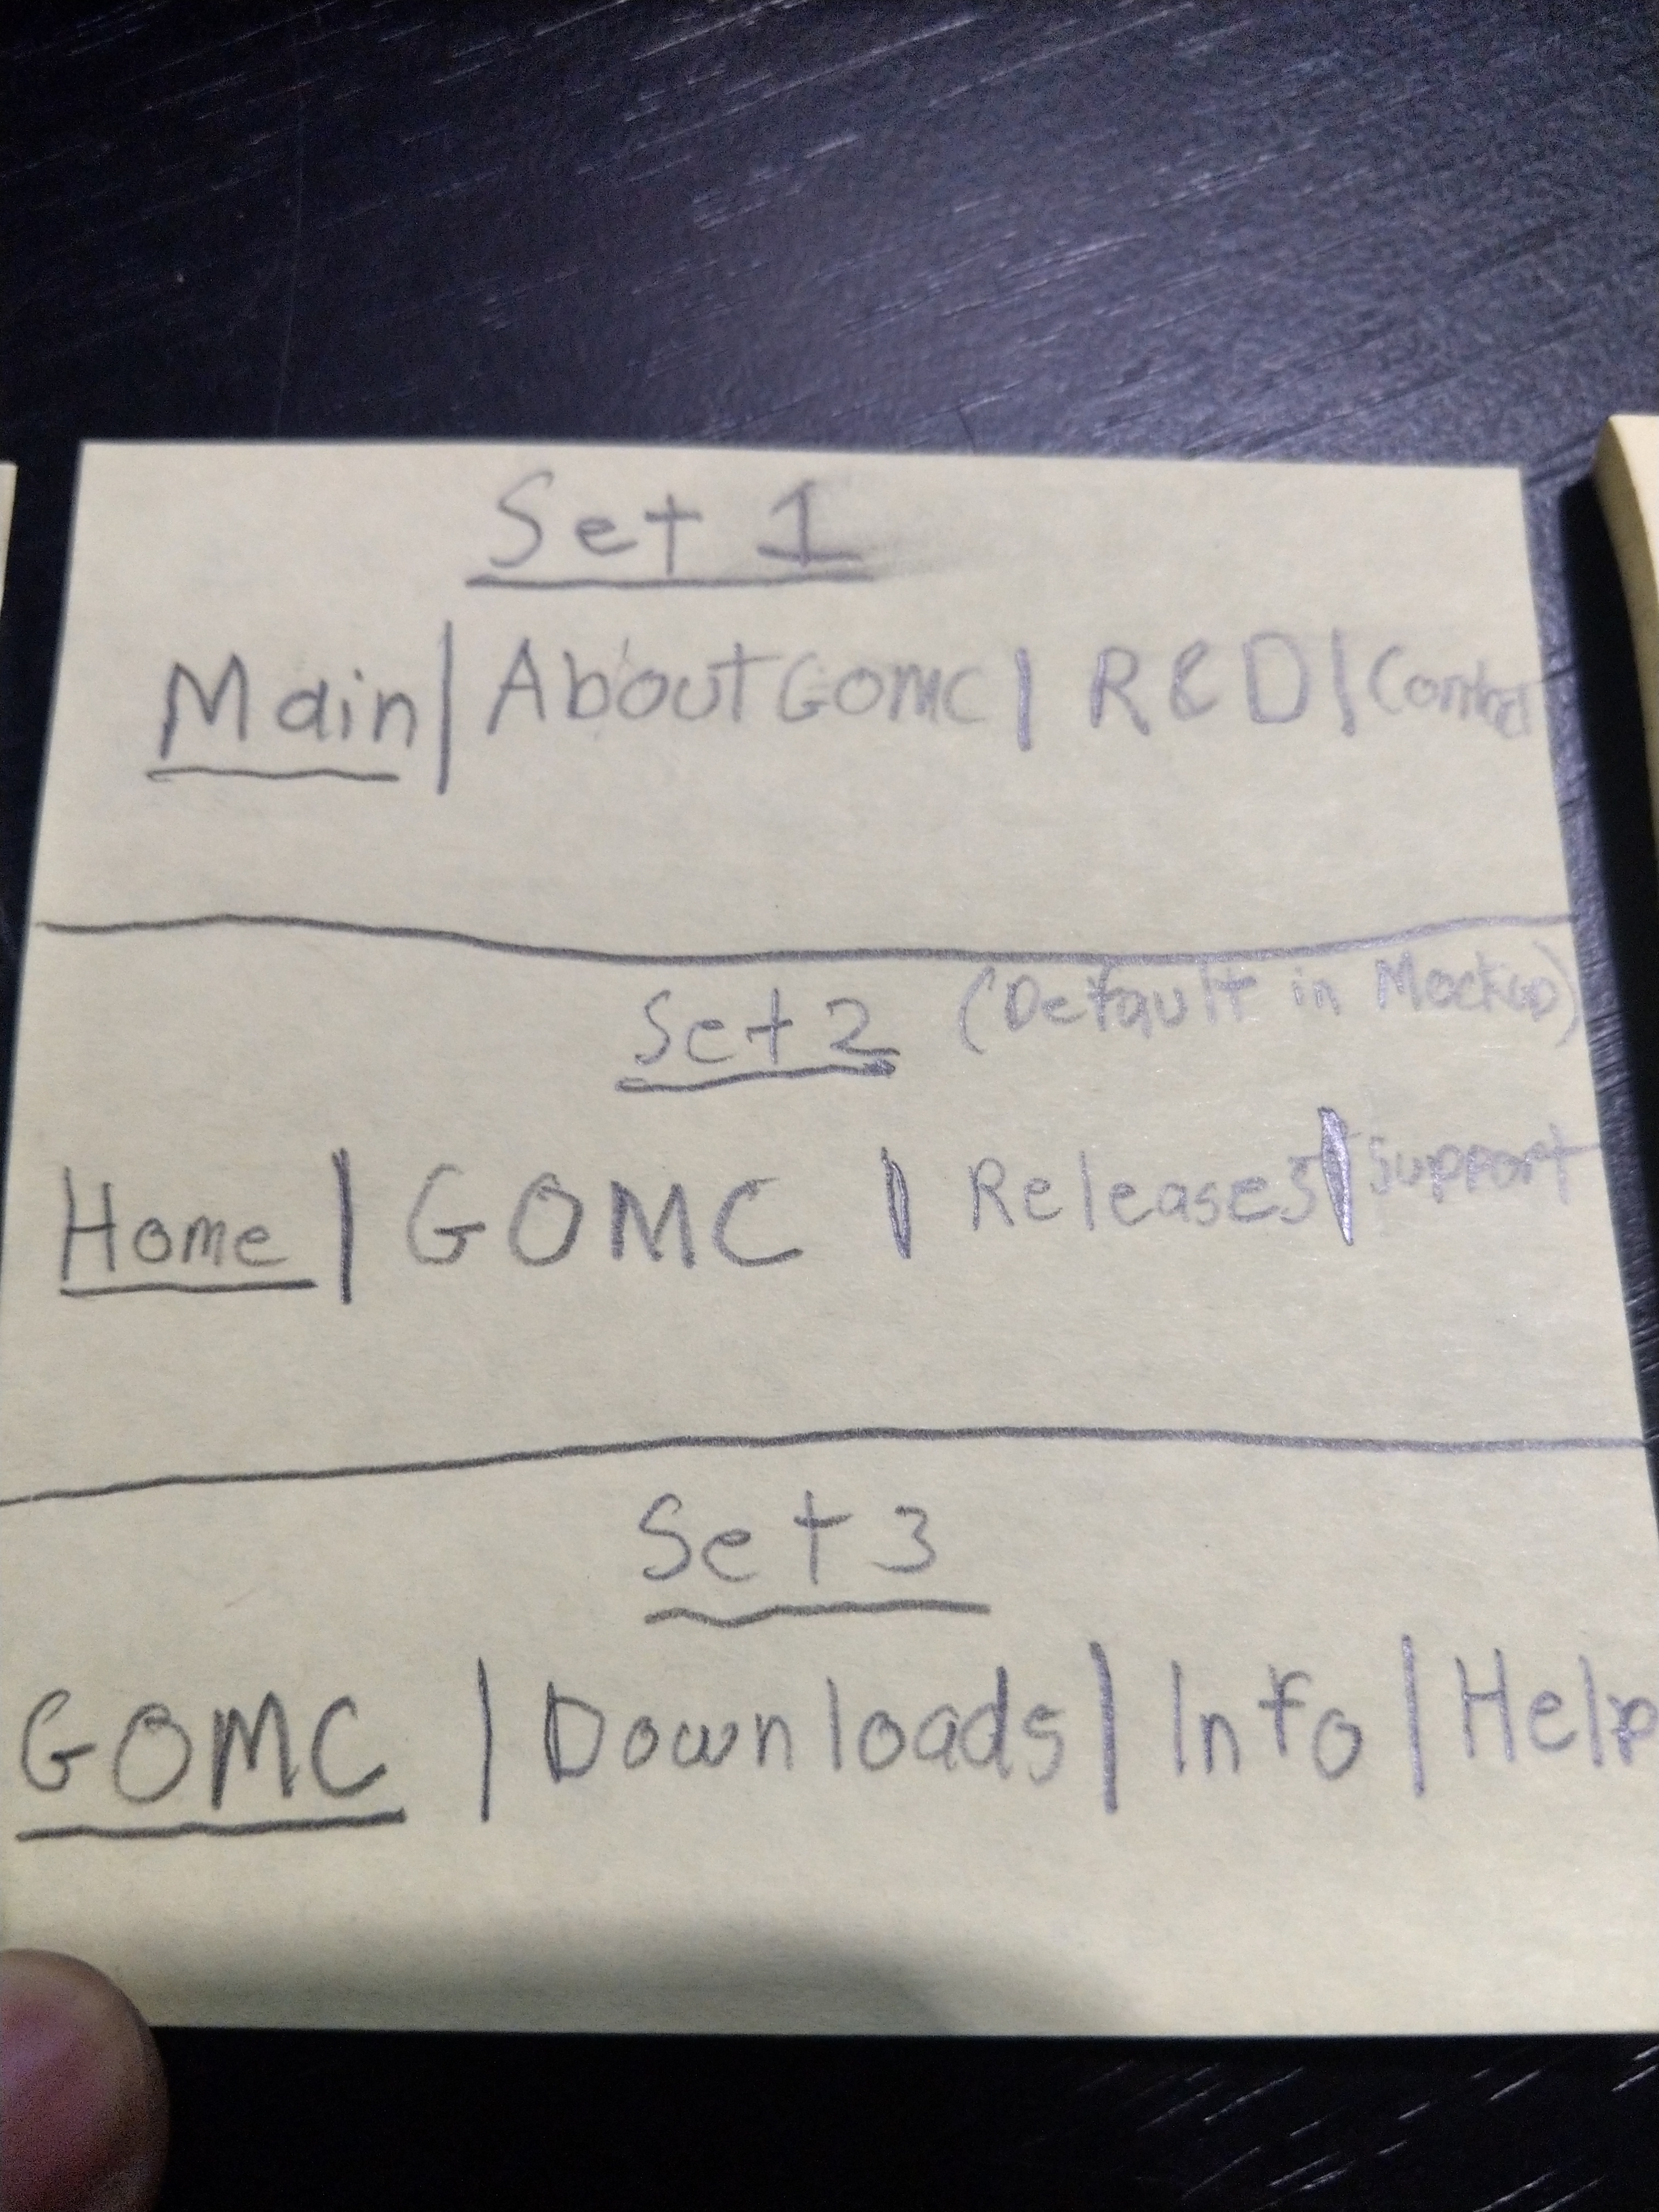 Set 1
Main | About GOMC | R&D | Contact
Set 2 (Default in Mockup)
Home | GOMC | Releases | Support
Set 3
GOMC | Downloads | Info | Help